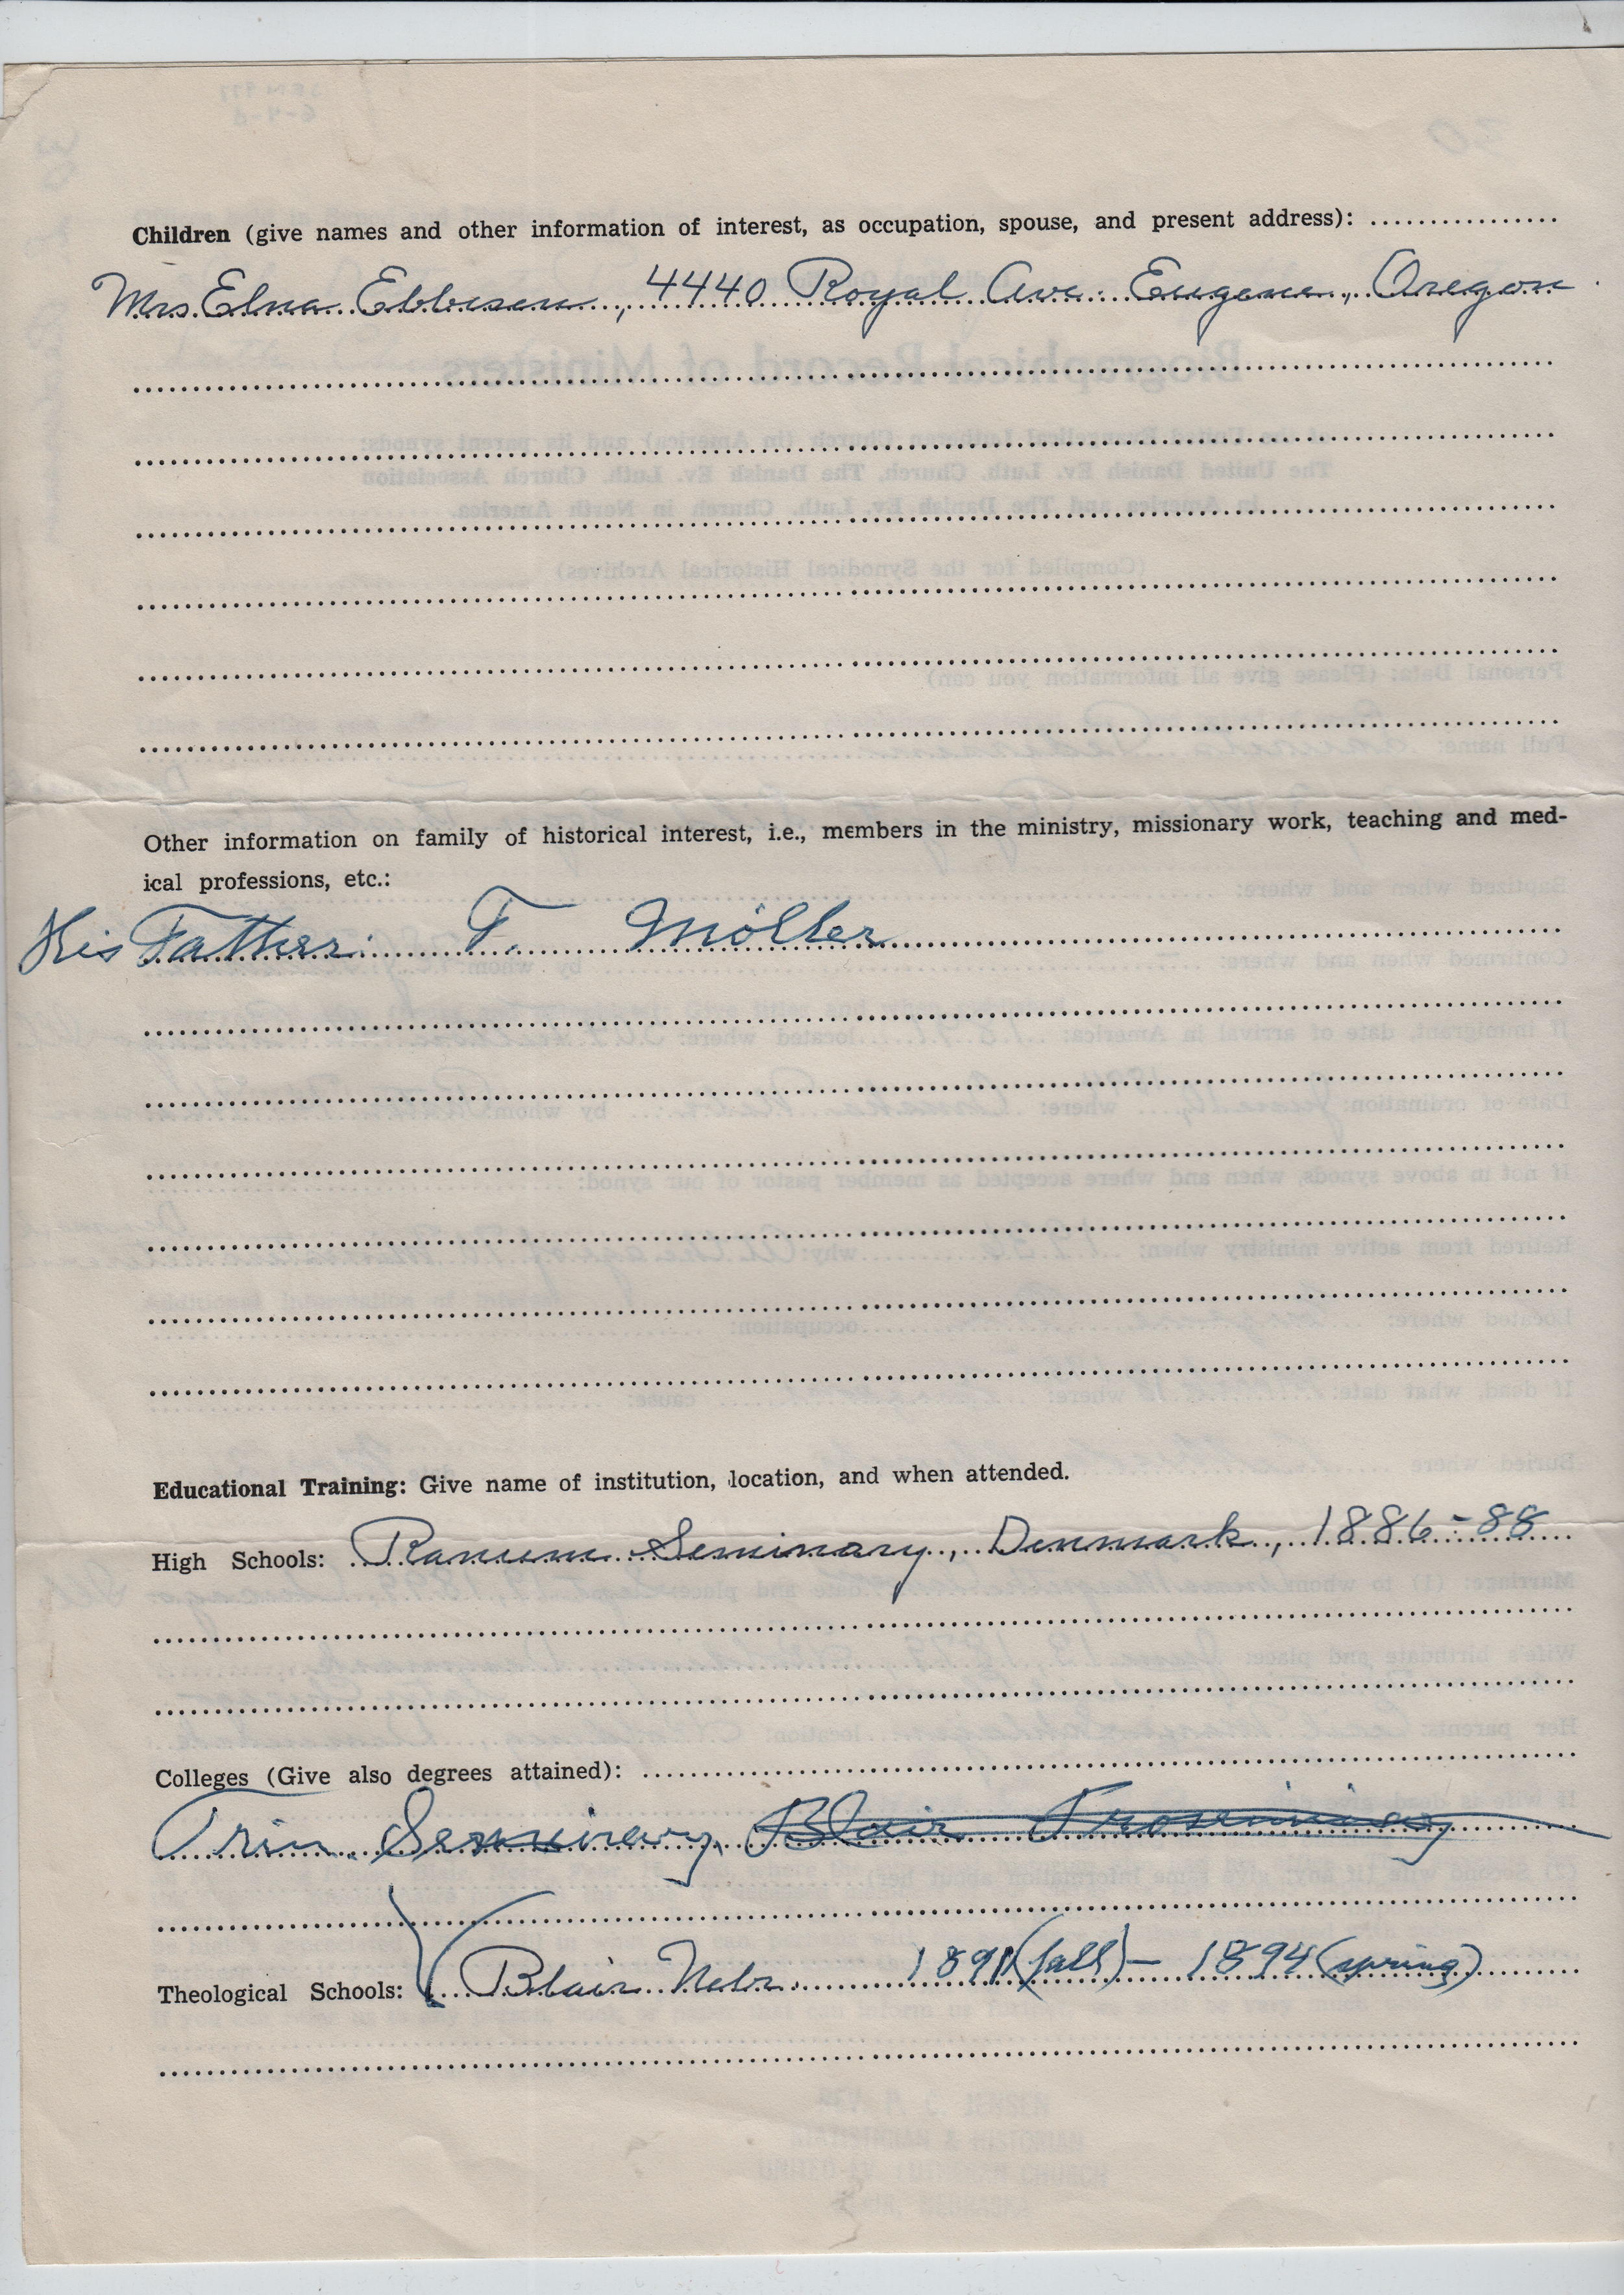 Children (give names and other information of interest, as occupation, spouse, and present address): ................
Mrs. Elna Ebbesen, 4440 Royal Ave. Eugene, Oregon
Other information on family of historical interest, i.e., members in the ministry, missionary work, teaching and med-
ical professions, etc.:
His Father: F. Möller
Educational Training: Give name of institution, location, and when attended.
High Schools: Ranum Seminary, Denmark, 1886-88
Colleges (Give also degrees attained): ................
Trin. Seminary, Blair
Theological Schools: Blair Nebr. 1891 (fall) — 1894 (spring)